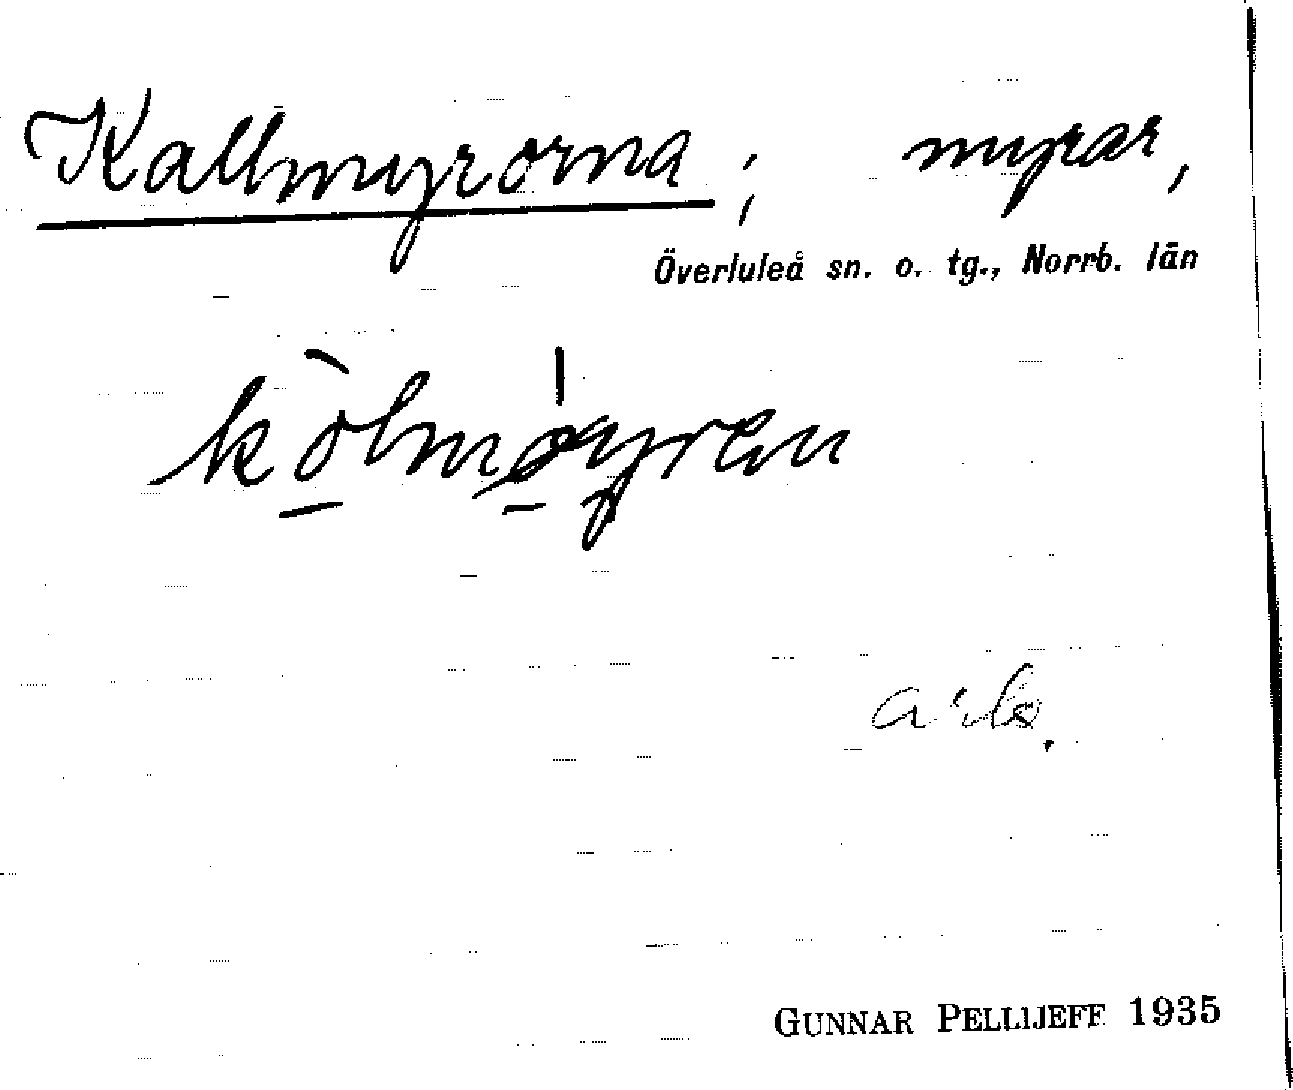 Kallmyrorna; myrar,
Överluleå sn. o. tg., Norrb. län
kòlmøyren
arb.
GUNNAR PELLIJEFF 1935